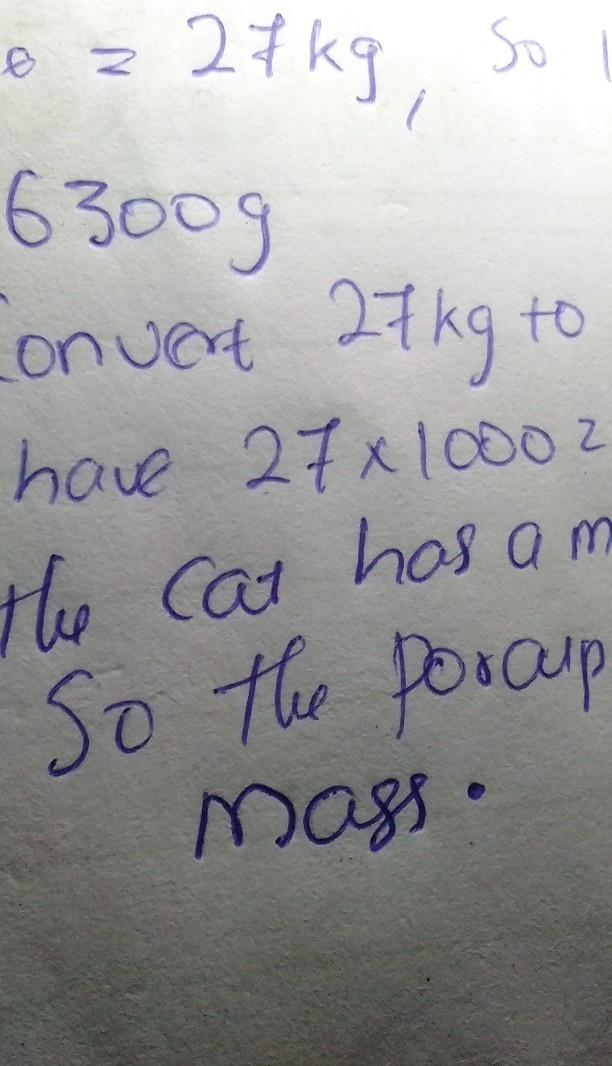 = 27kg, So
6300g
Convert 27kg to
have 27x1000 =
the cat has a m
So the Porcup
mass.